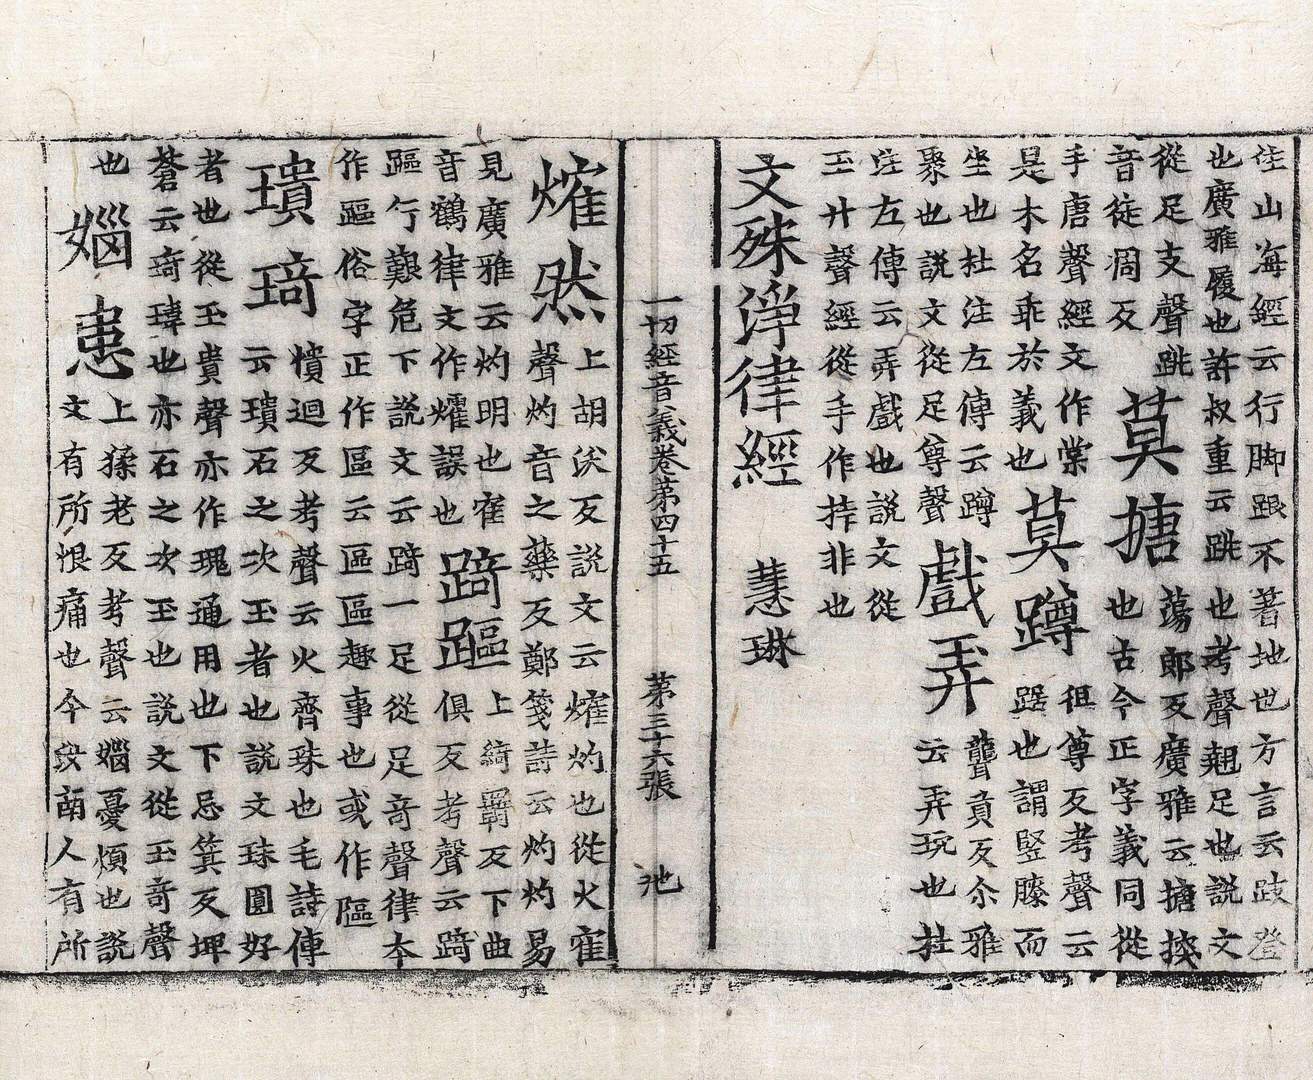 往山海經云行脚跟不著地也方言云跂登
也廣雅履也許叔重云跳也考聲翹足也說文
從足支聲跳
音徒凋反
莫搪
蕩郎反廣雅云搪揬
也古今正字義同從
手唐聲經文作棠
是木名乖於義也
莫蹲
徂尊反考聲云
踞也謂竪膝而
坐也杜注左傳云蹲
聚也說文從足尊聲
戲弄
聾貢反尒雅
云弄玩也杜
注左傳云弄戲也說文從
玉廾聲經從手作挊非也
文殊淨律經 慧琳
一切經音義卷第四十五 第三十六張 池
熦然
上胡沃反說文云熦灼也從火隺
聲灼音之藥反鄭箋詩云灼灼易
見廣雅云灼明也隺
音鶴律文作燿誤也
踦䠓
上綺羇反下曲
俱反考聲云踦
䠓行艱危下說文云踦一足從足奇聲律本
作䠓俗字正作區云區區趣事也或作嶇
璝琦
憒迴反考聲云火齊珠也毛詩傳
云璝石之次玉者也說文珠圓好
者也從玉貴聲亦作瑰通用也下忌箕反埤
蒼云琦瑋也亦石之次玉也說文從玉奇聲
也
㛴恚
上猱老反考聲云㛴憂煩也說
文有所恨痛也今汝南人有所